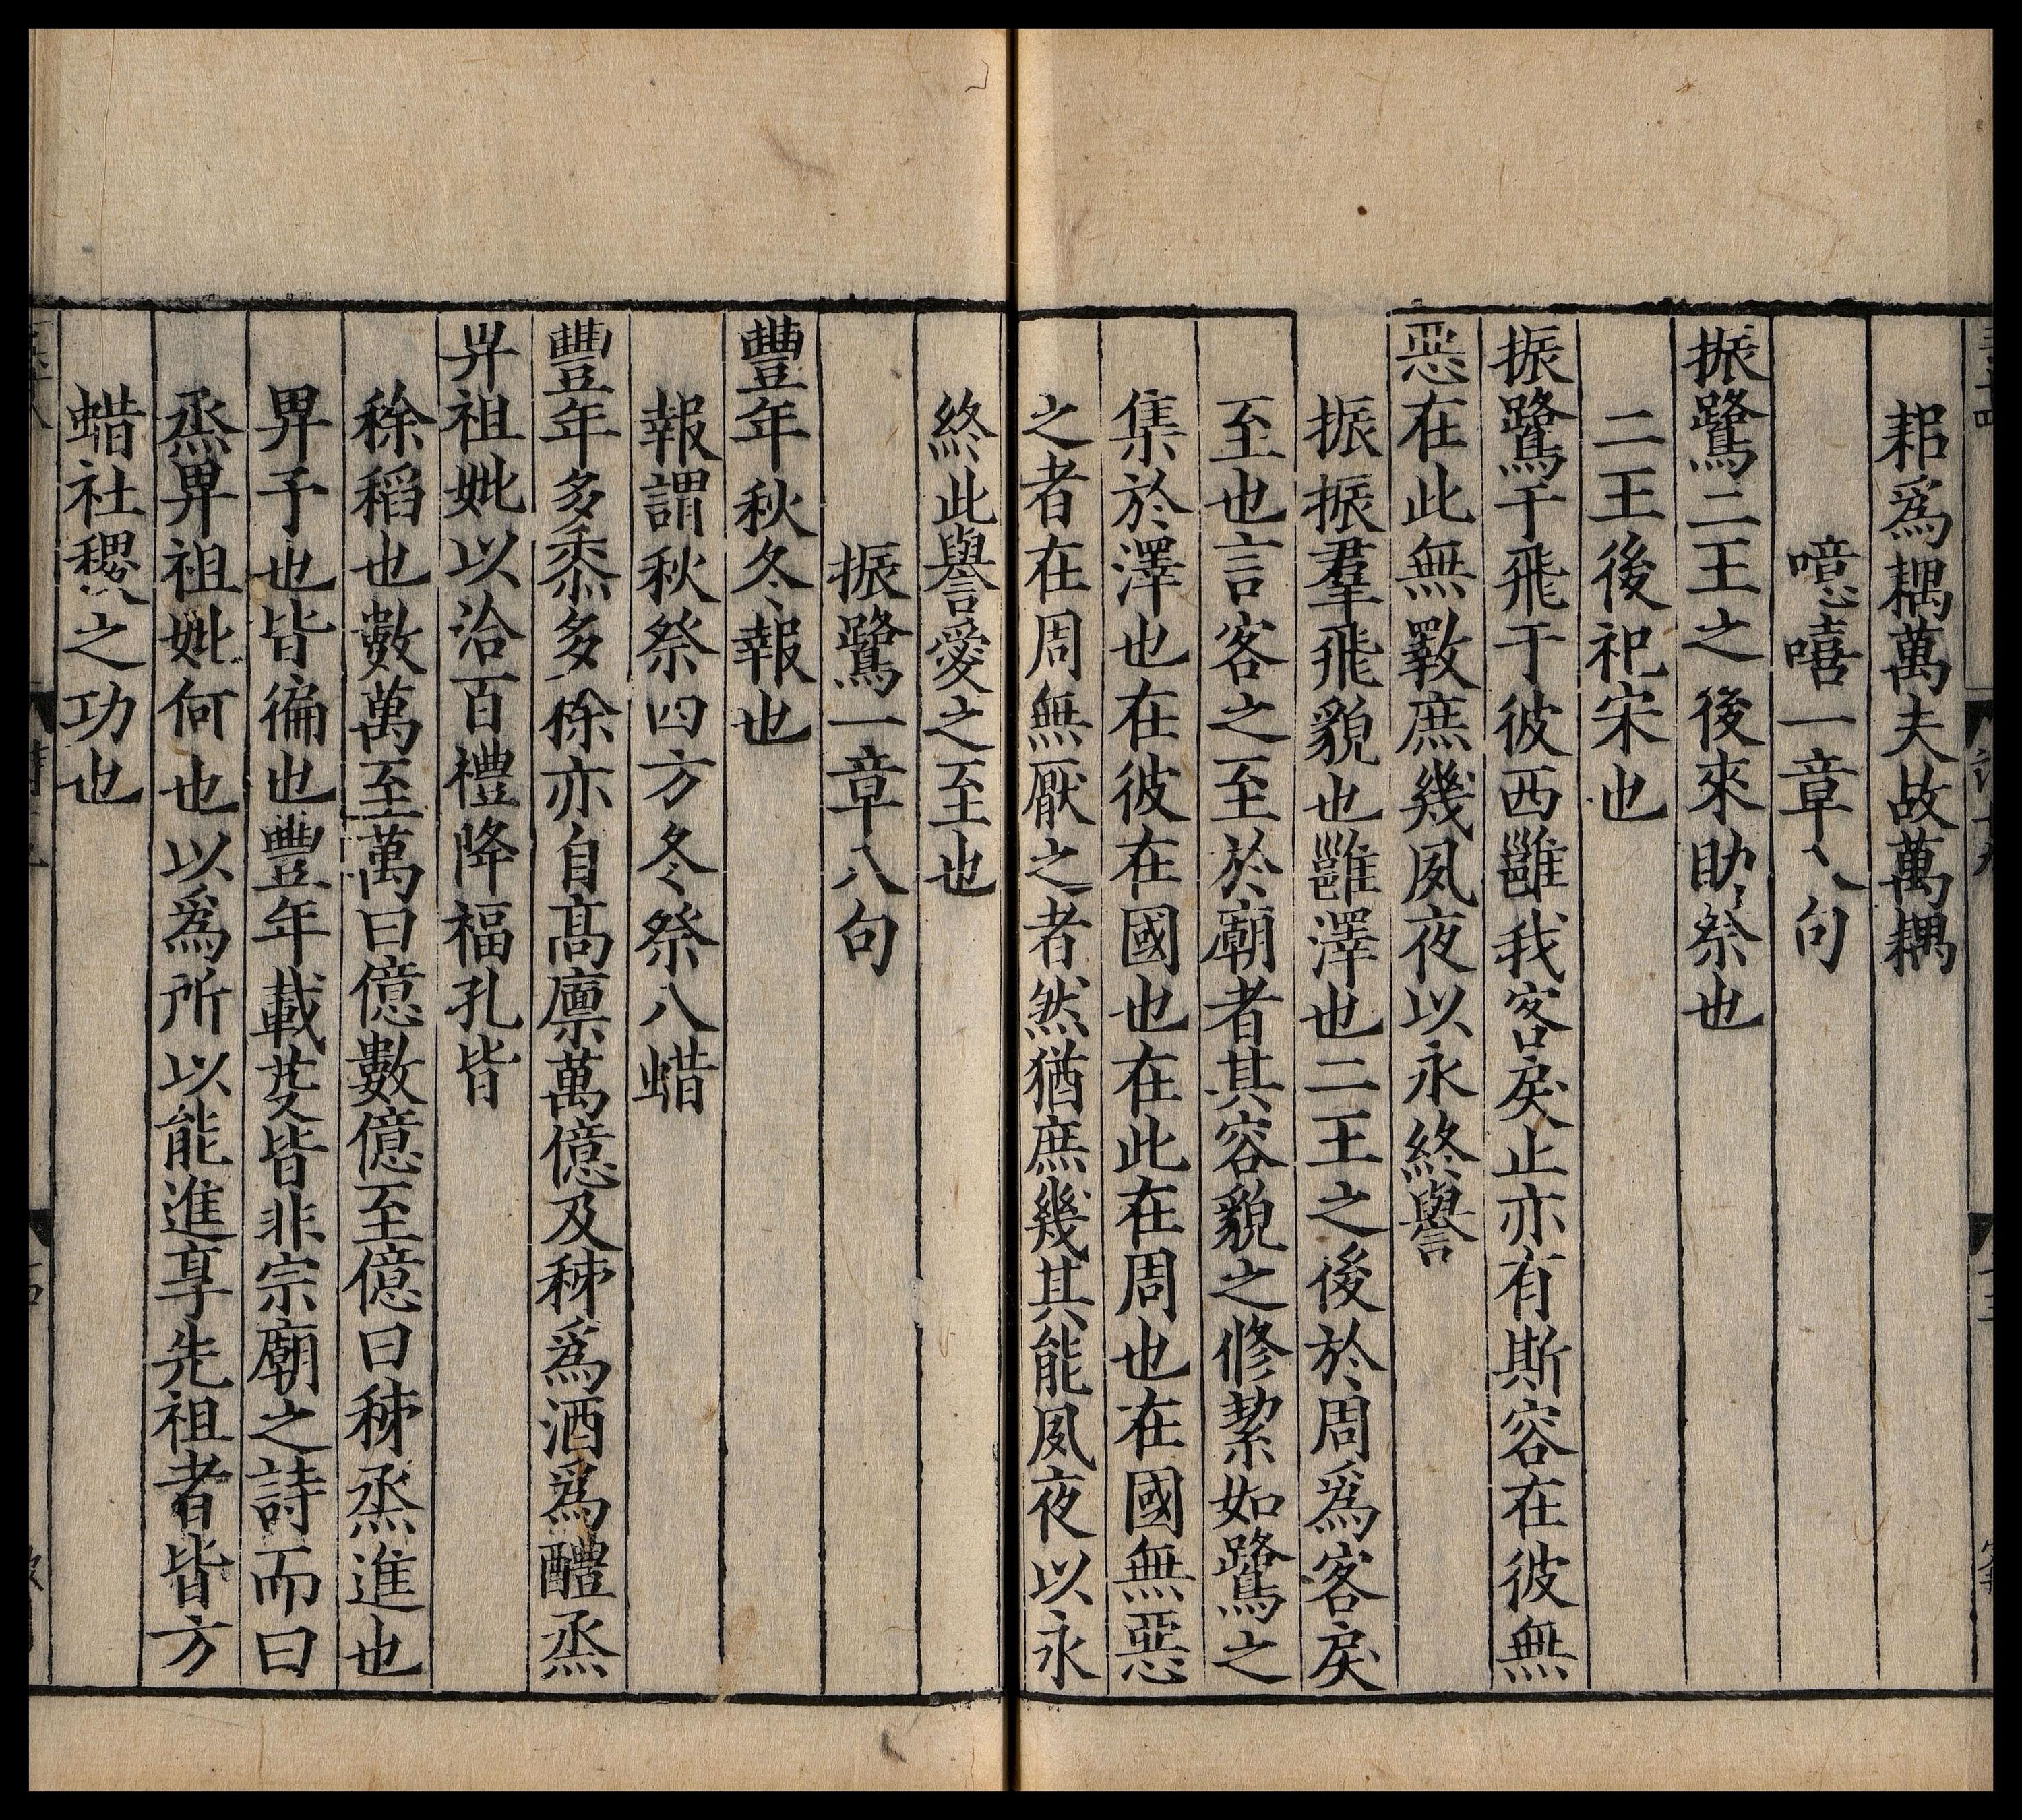 耜爲耦萬夫故萬耦
噫嘻一章八句
振鷺二王之後來助祭也
二王後祀宋也
振鷺于飛于彼西雝我客戾止亦有斯容在彼無
惡在此無斁庶幾夙夜以永終譽
振振羣飛貌也雝澤也二王之後於周爲客戾
至也言客之至於廟者其容貌之修絜如鷺之
集於澤也在彼在國也在此在周也在國無惡
之者在周無厭之者然猶庶幾其能夙夜以永
終此譽愛之至也
振鷺一章八句
豐年秋冬報也
報謂秋祭四方冬祭八蜡
豐年多黍多稌亦自高廪萬億及秭爲酒爲醴烝
畀祖妣以洽百禮降福孔皆
稌稻也數萬至萬曰億數億至億曰秭烝進也
畀予也皆徧也豐年載芟皆非宗廟之詩而曰
烝畀祖妣何也以爲所以能進享先祖者皆方
蜡社稷之功也